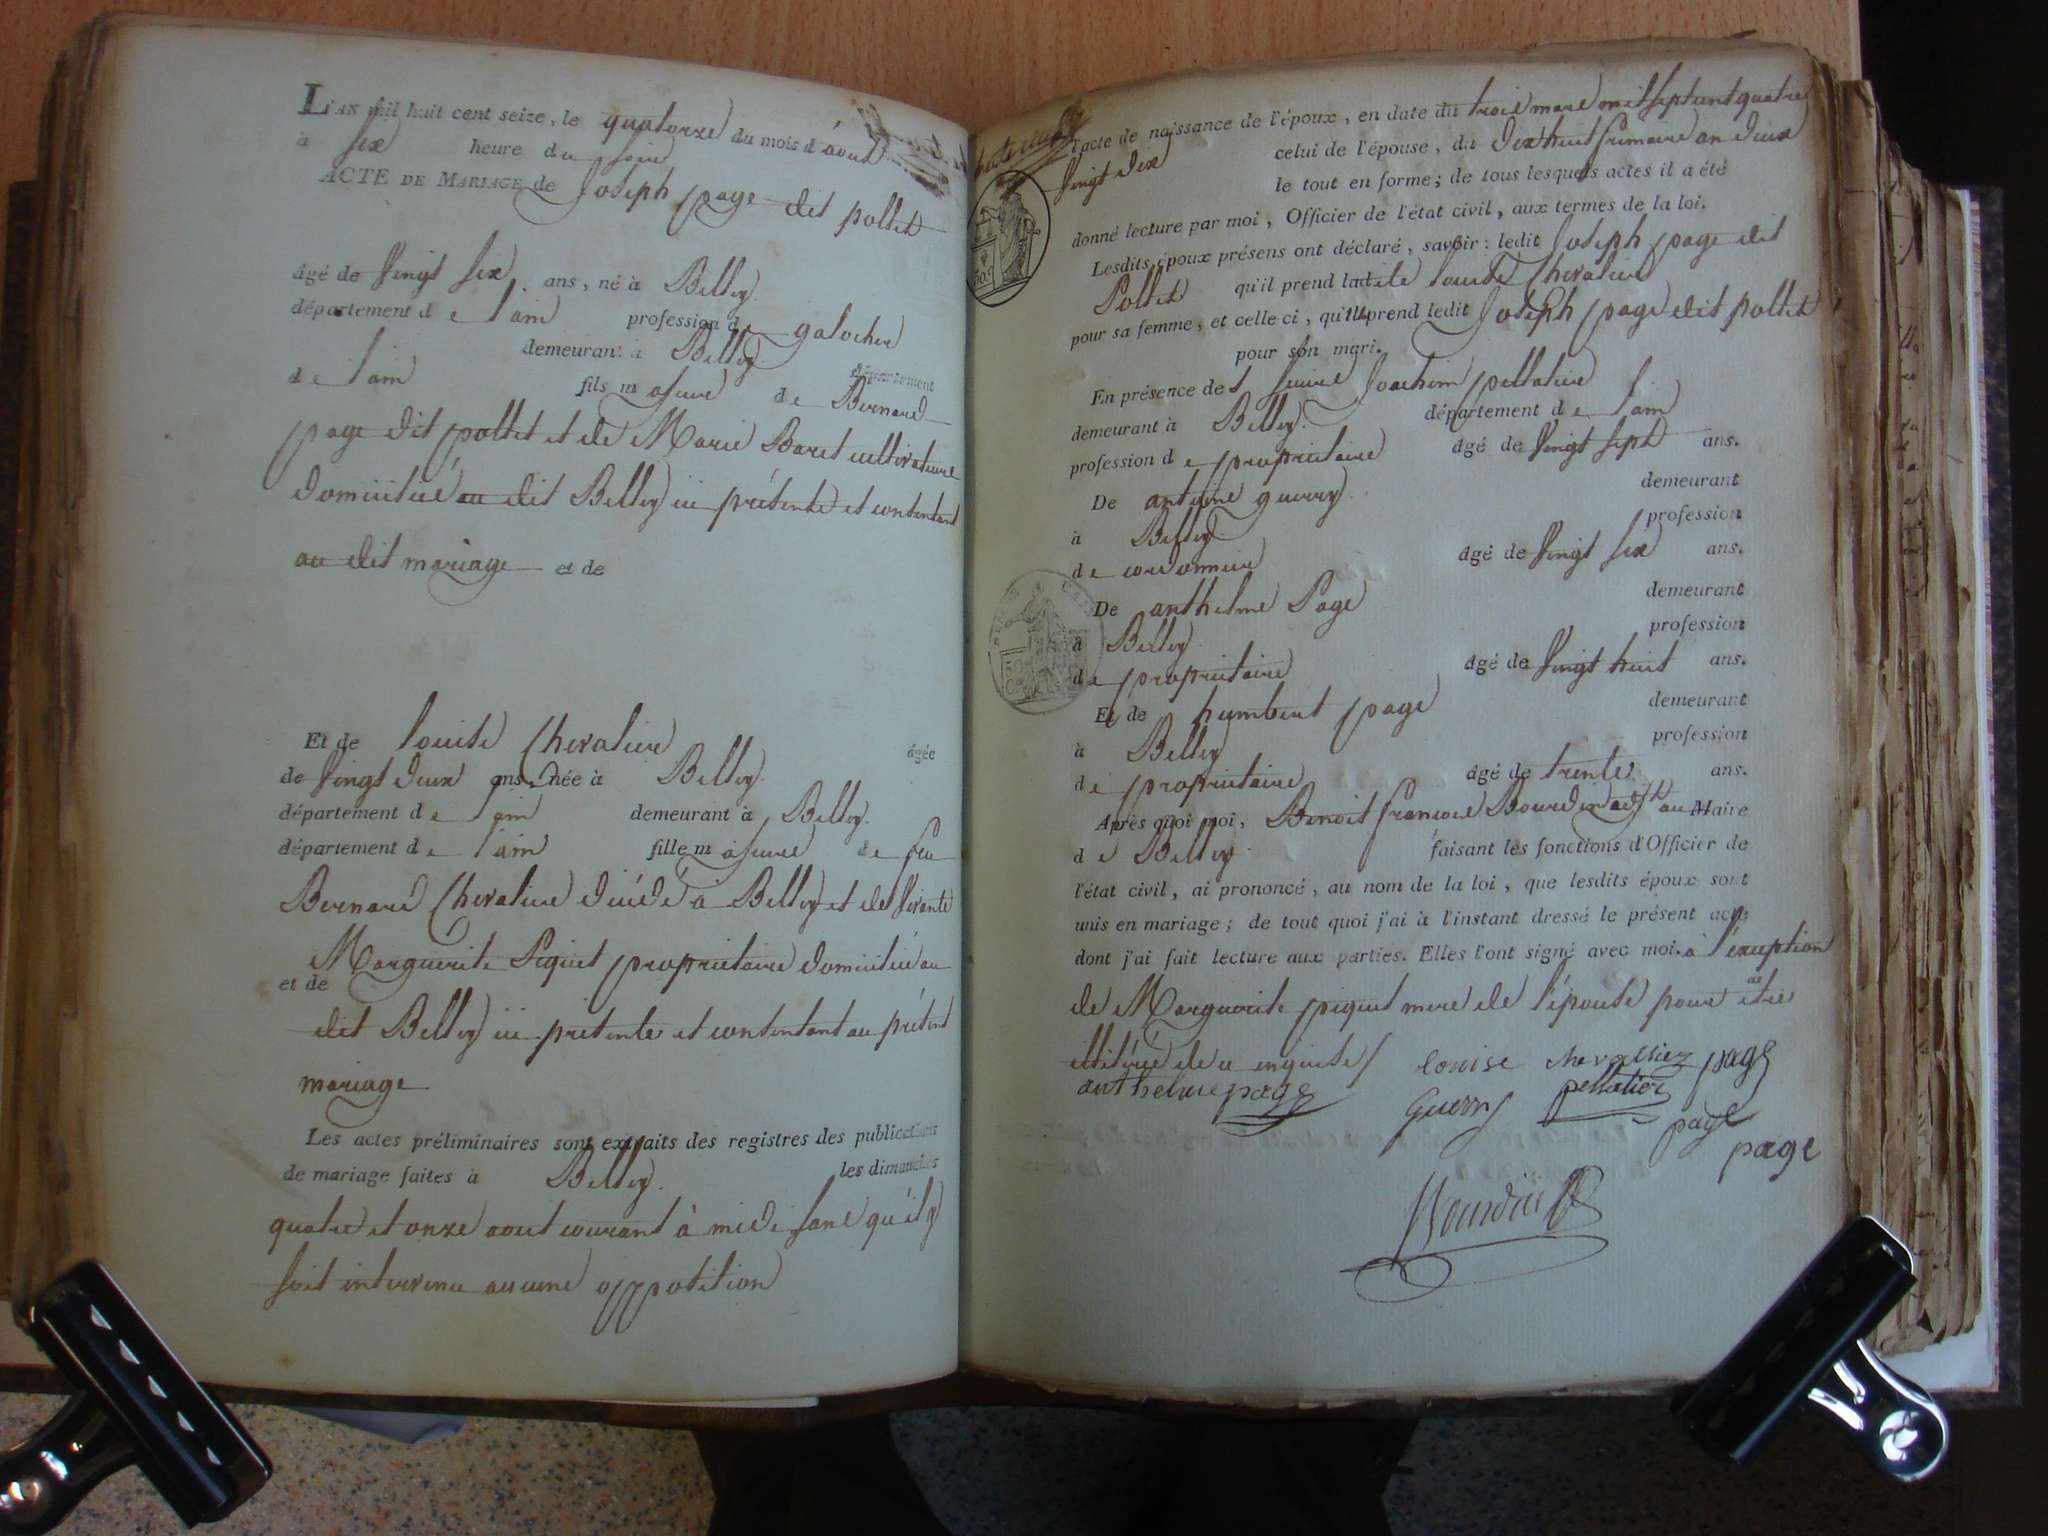 L'AN mil huit cent seize, le quatorze du mois d'aout
à six heure du soir
ACTE DE MARIAGE de Joseph page dit pottet
âgé de vingt six ans, né à Belley
département de l'ain profession de galochier
demeurant à Belley département
de l'ain fils majeur de Bernard
page dit pottet et de Marie Baret cultivateurs
domiciliés au dit Belley ici présents et consentant
au dit mariage et de
Et de Louise Chevalier âgée
de vingt deux ans, née à Belley
département de l'ain demeurant à Belley
département de l'ain fille majeure de feu
Bernard Chevalier décédé à Belley et de vivante
Marguerite Piquet propriétaire domiciliée au
et de
dit Belley ici présente et consentant au présent
mariage
Les actes préliminaires sont extraits des registres des publications
de mariage faites à Belley les dimanches
quatre et onze aout courant à midi sans qu'il y
soit intervenu aucune opposition
l'acte de naissance de l'époux, en date du trois mars mil sept cent quatre
vingt dix celui de l'épouse, du dix huit frimaire an deux
le tout en forme; de tous lesquels actes il a été
donné lecture par moi, Officier de l'état civil, aux termes de la loi.
Lesdits époux présens ont déclaré, savoir: ledit Joseph page dit
Pottet qu'il prend ladite Louise Chevalier
pour sa femme, et celle ci, qu'elle prend ledit Joseph page dit pottet
pour son mari.
En présence de Joachim pellatier
demeurant à Belley département de l'ain
profession de propriétaire âgé de vingt sept ans.
De antoine guerry demeurant
à Belley profession
de cordonnier âgé de vingt six ans.
De anthelme Page demeurant
à Belley profession
de propriétaire âgé de vingt huit ans.
Et de humbert page demeurant
à Belley profession
de propriétaire âgé de trente ans.
Après quoi moi, Benoit françois Bourdin adjt au Maire
de Belley faisant les fonctions d'Officier de
l'état civil, ai prononcé, au nom de la loi, que lesdits époux sont
unis en mariage; de tout quoi j'ai à l'instant dressé le présent acte
dont j'ai fait lecture aux parties. Elles l'ont signé avec moi. à l'exeption
de Marguerite piquet mere de l'épouse pour être
illitérée de ce enquise
Louise chevallier page
anthelme page pellatier
Guerry page
page
Bourdin